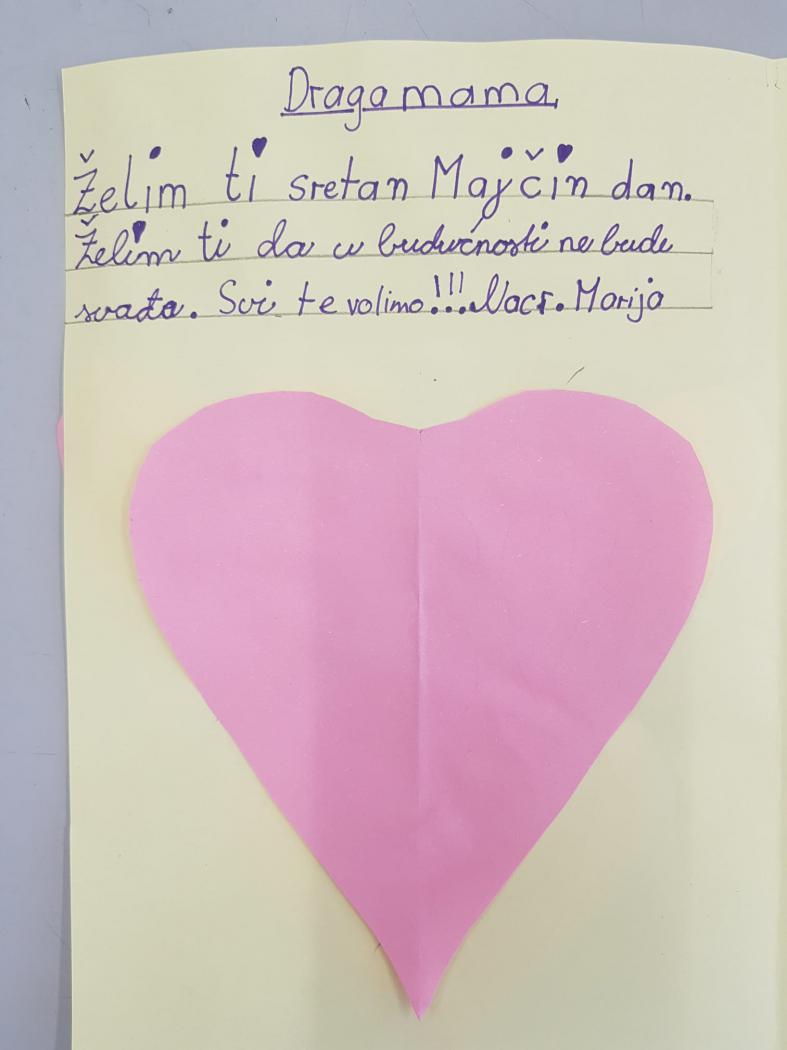 Draga mama,
Želim ti sretan Majčin dan.
Želim ti da u budućnosti ne bude
svađa. Svi te volimo!!! Nacr. Marija